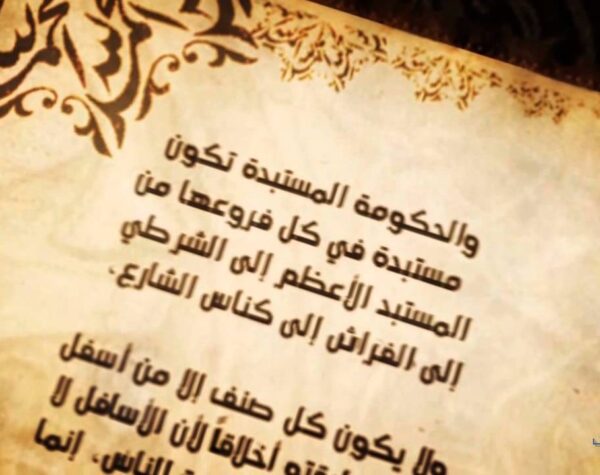 والحكومة المستبدة تكون
مستبدة في كل فروعها من
المستبد الأعظم إلى الشرطي
إلى الفراش إلى كناس الشارع.
ولا يكون كل صنف إلا من أسفل
أخلاقاً لأن الأسافل لا
إنما